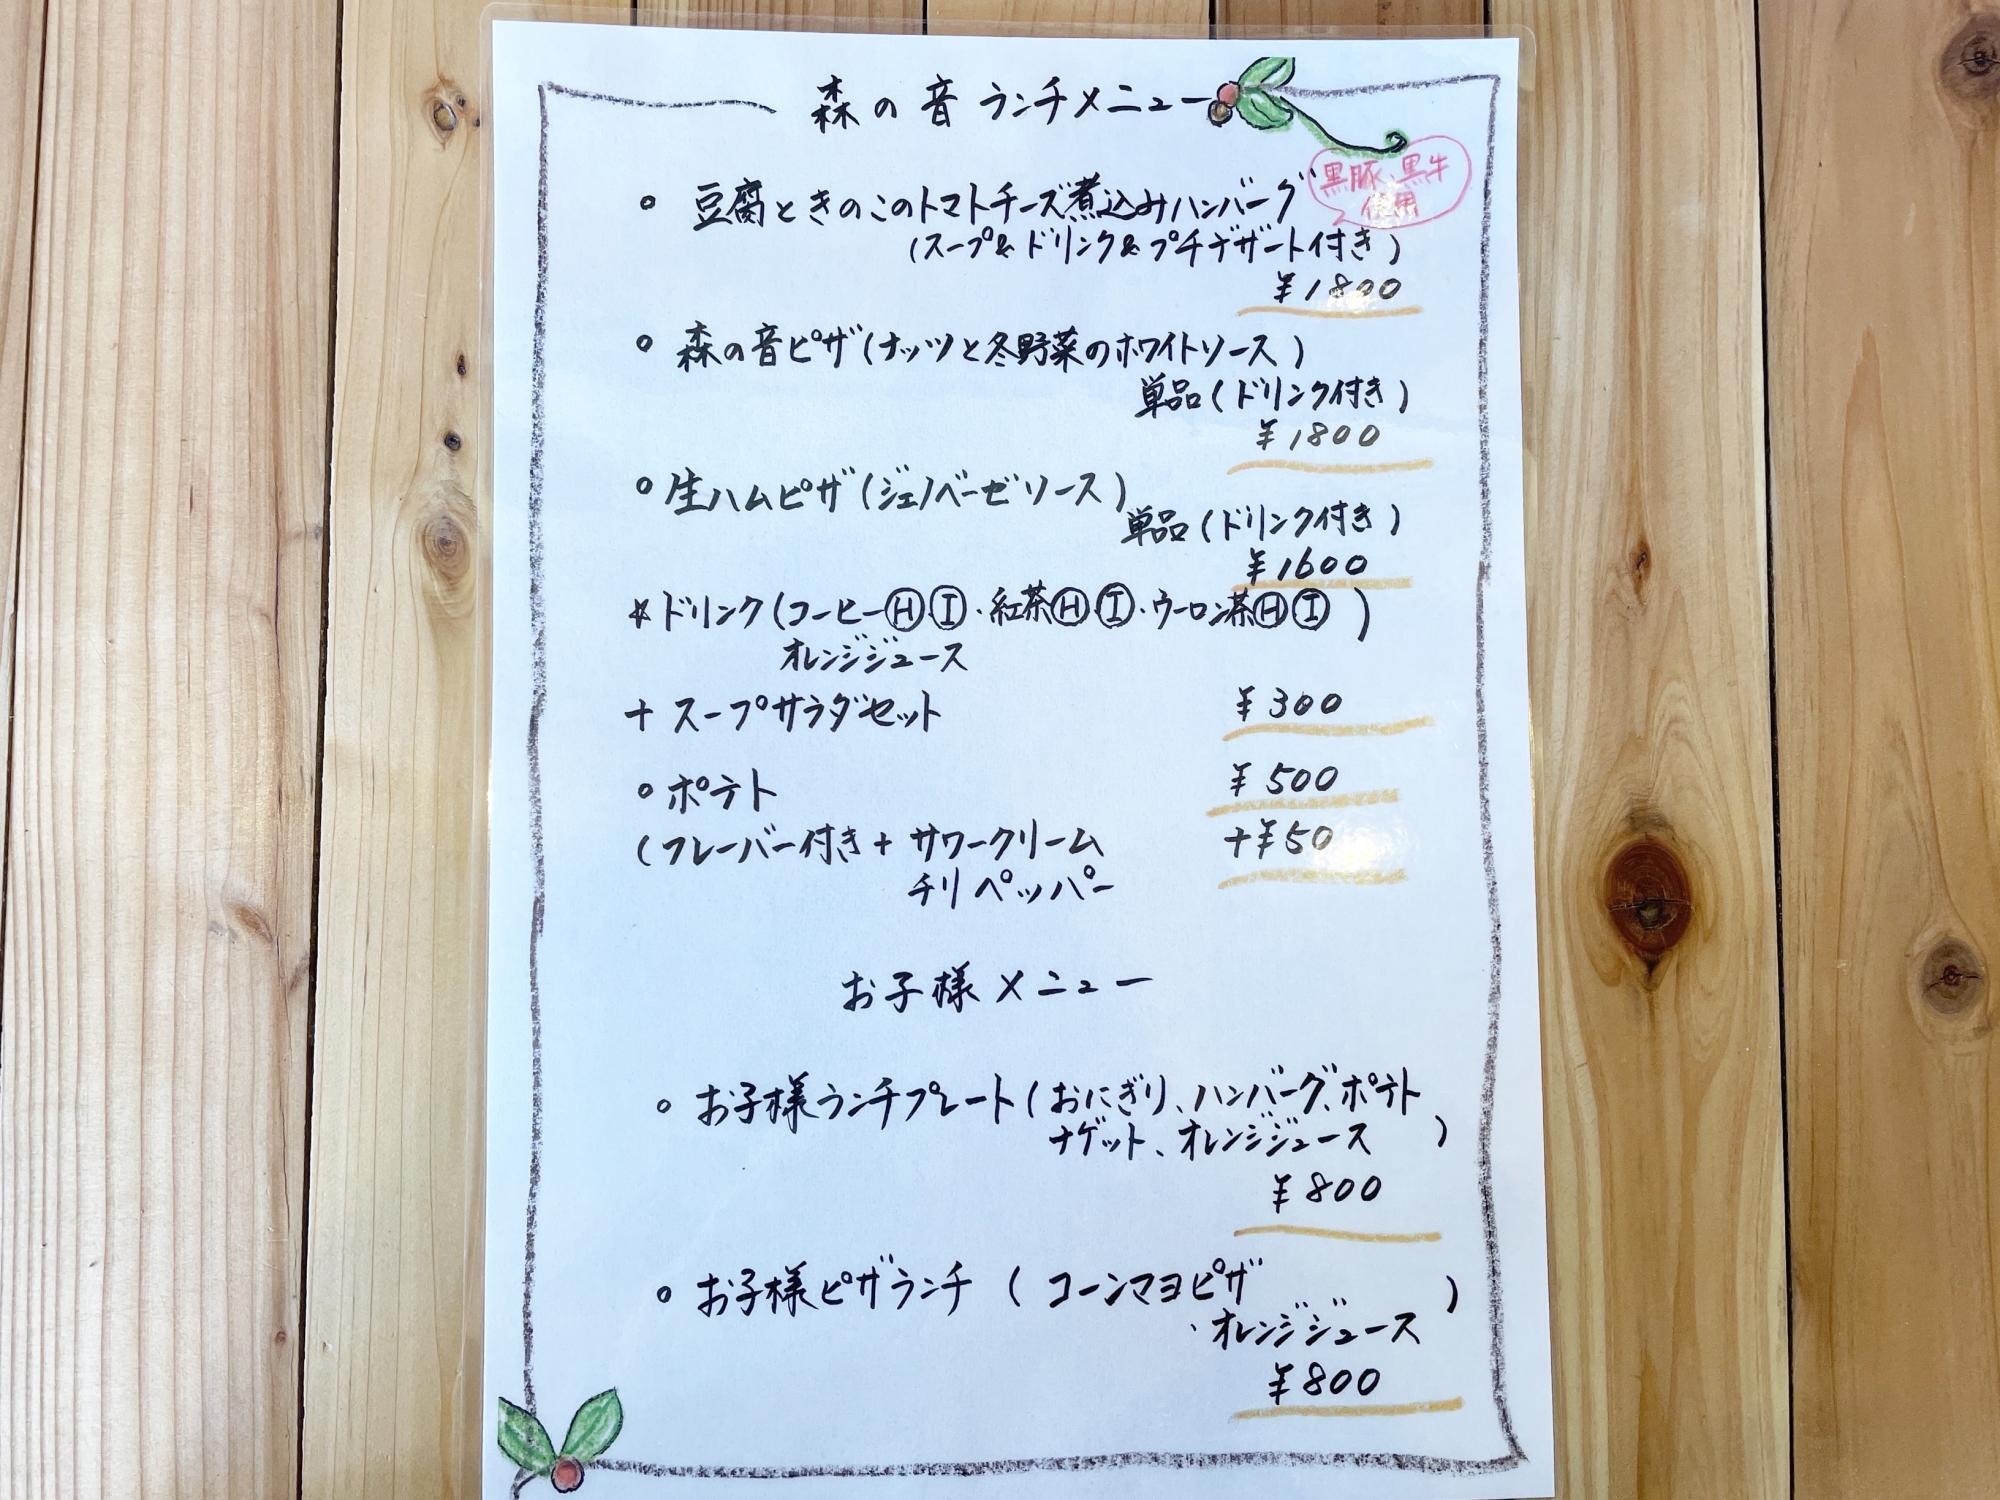 森の音 ランチメニュー
黒豚、黒牛
使用
○ 豆腐ときのこのトマトチーズ煮込みハンバーグ
(スープ&ドリンク&プチデザート付き)
¥1800
○ 森の音ピザ(ナッツと冬野菜のホワイトソース)
単品(ドリンク付き)
¥1800
○ 生ハムピザ(ジェノベーゼソース)
単品(ドリンク付き)
¥1600
☆ドリンク(コーヒーⒽⒾ・紅茶ⒽⒾ・ウーロン茶ⒽⒾ)
オレンジジュース
+ スープサラダセット ¥300
○ ポテト ¥500
(フレーバー付き+ サワークリーム +¥50
チリペッパー
お子様メニュー
○ お子様ランチプレート(おにぎり、ハンバーグ、ポテト
ナゲット、オレンジジュース)
¥800
○ お子様ピザランチ (コーンマヨピザ)
・オレンジジュース
¥800